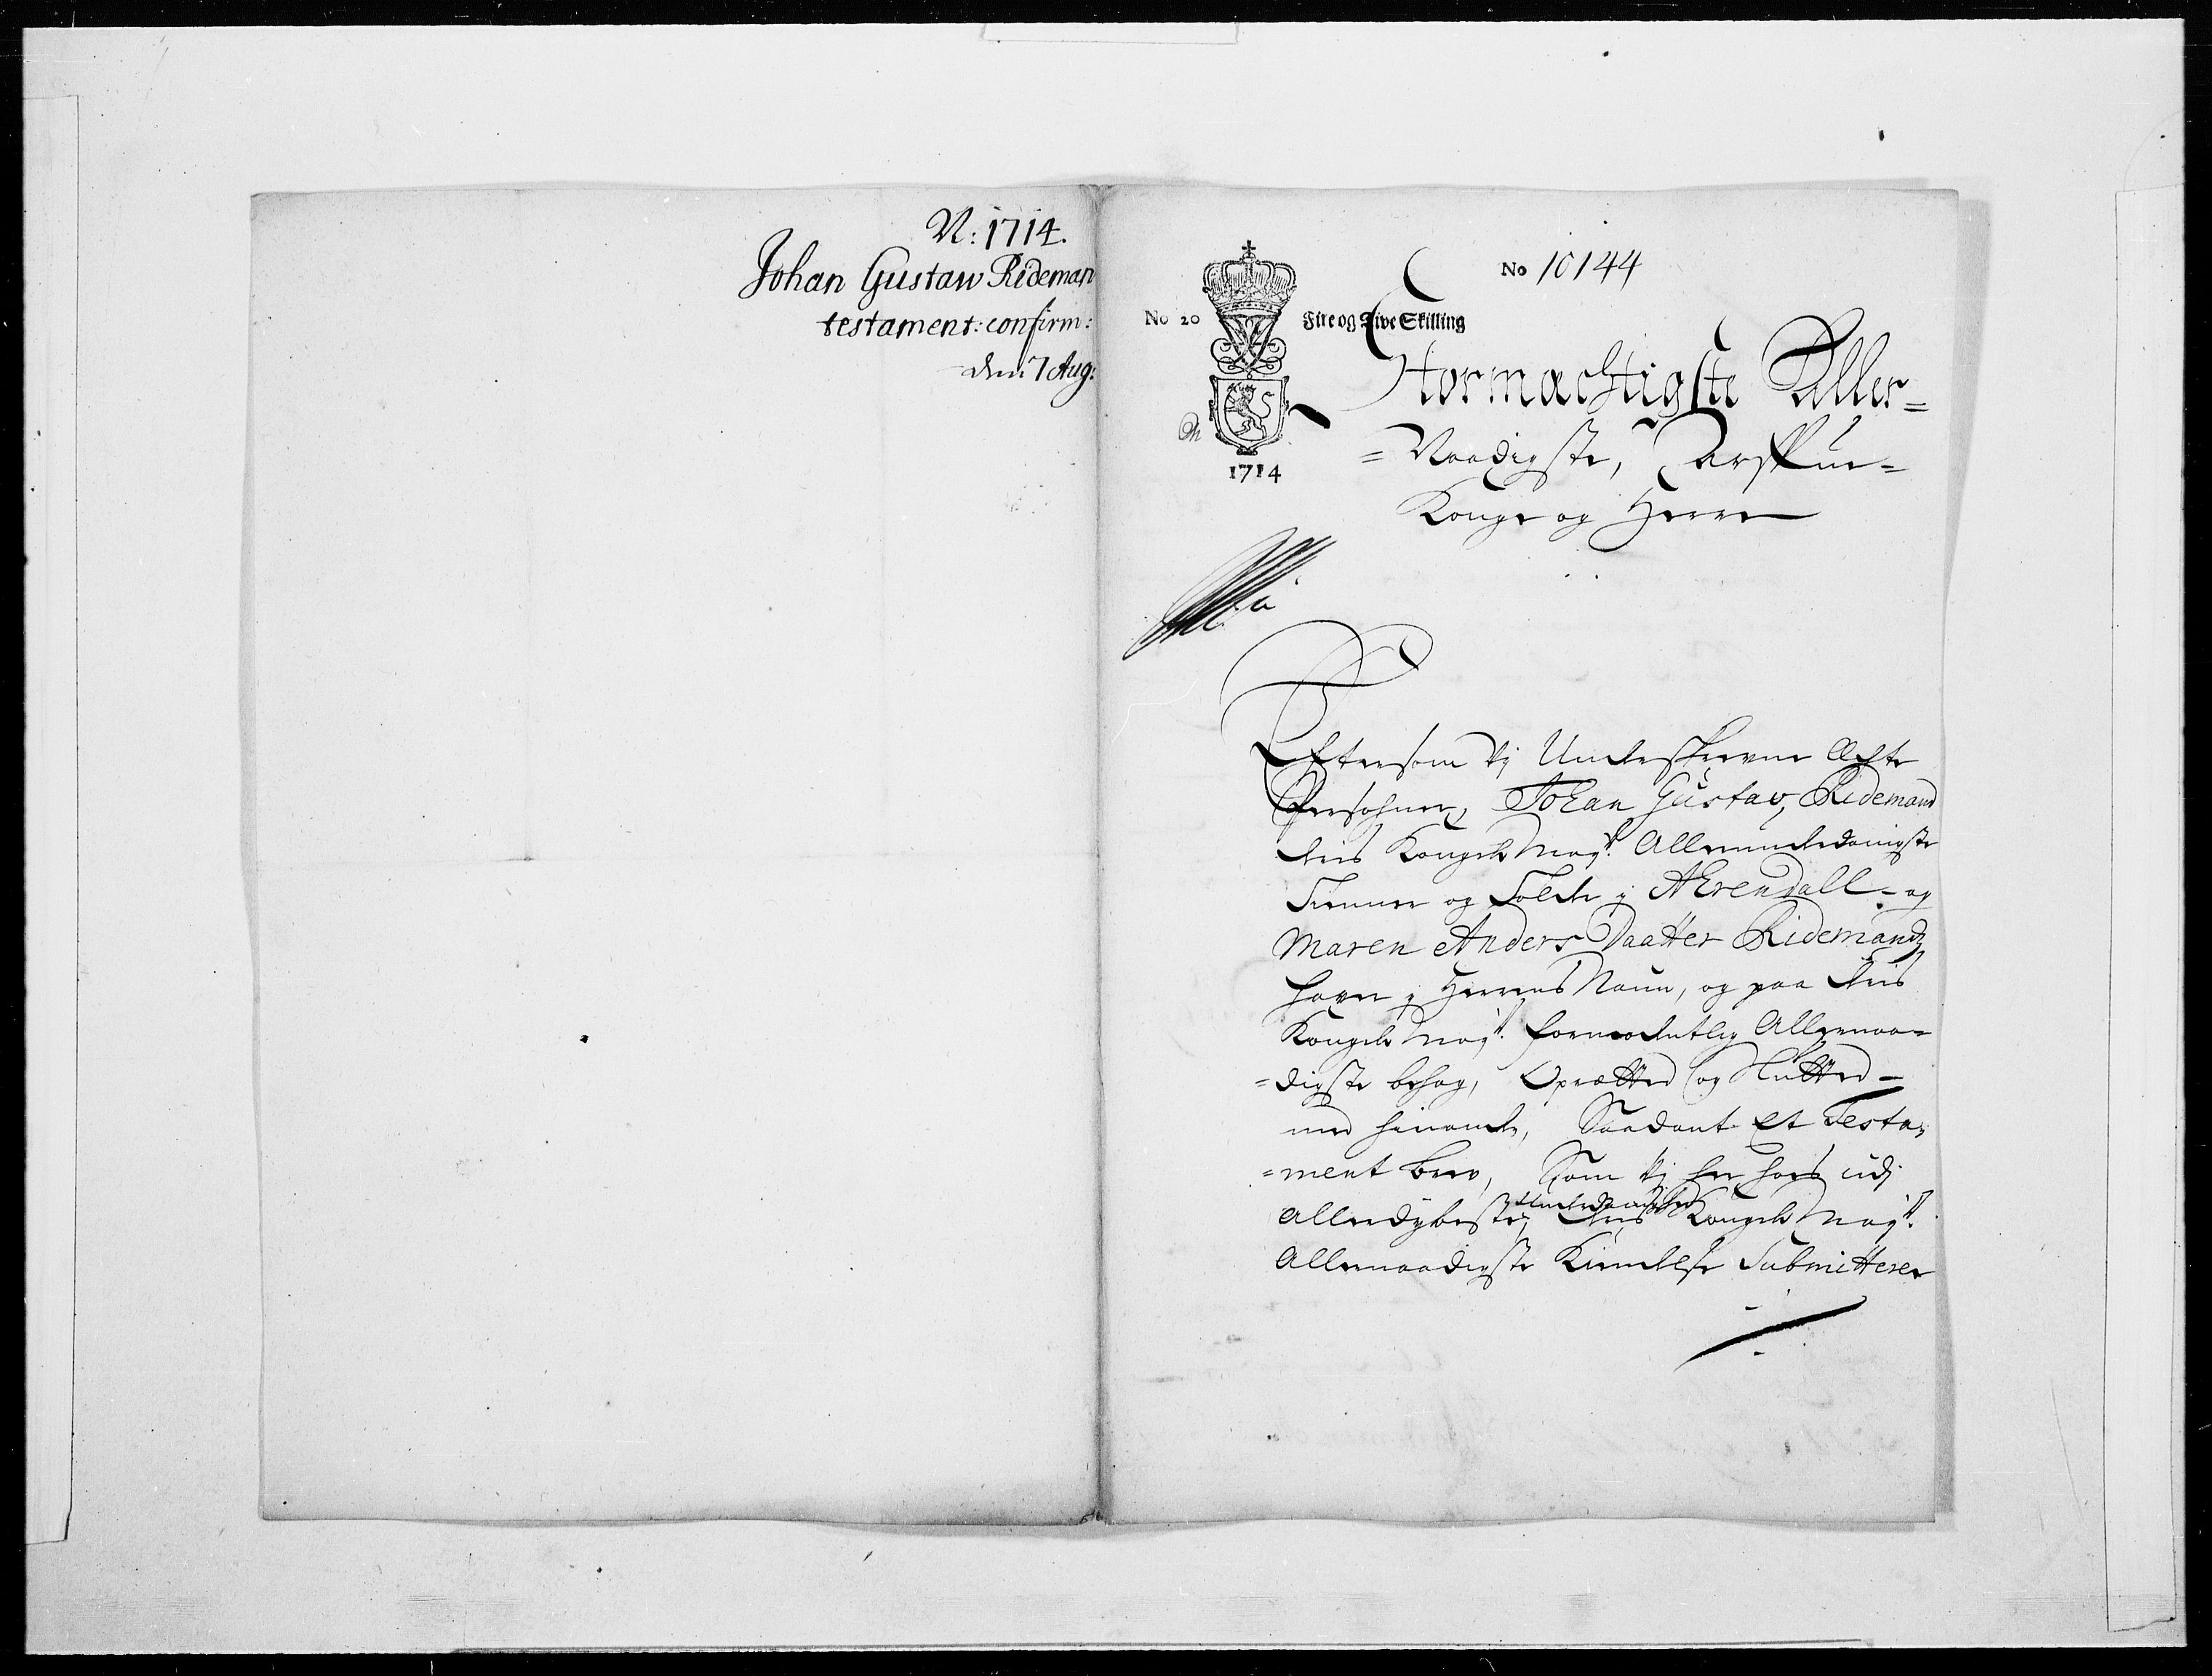 N: 1714.
Johan Gustaw Rideman
testament: confirm:
den 7 Aug:
No 10144
No 20 Fire og Tive Skilling
1714
Stormæchtigste Aller=
=Naadigste, Arffue=
Konge og Herre
Eftersom Vj Underskrevne Ægte
Persohner, Johan Gustav Ridemand
Deris Kongel Mayt. Allerunderdanigste
Tienner og Tolder j AErendall – og
Maren Anders Daatter Ridemandz
hafver j Herrens Naun, og paa Deris
Kongel Mayt. formodentlig Allernaa=
=digste behag, Oprætted og Slutted –
med hinande, Saadant Et Testa,
=ment brev, Som Vj her hoes udj
Allerdybeste Underdanighed Deris Kongel Mayt.
Allernaadigste Kiendelse Submitterer